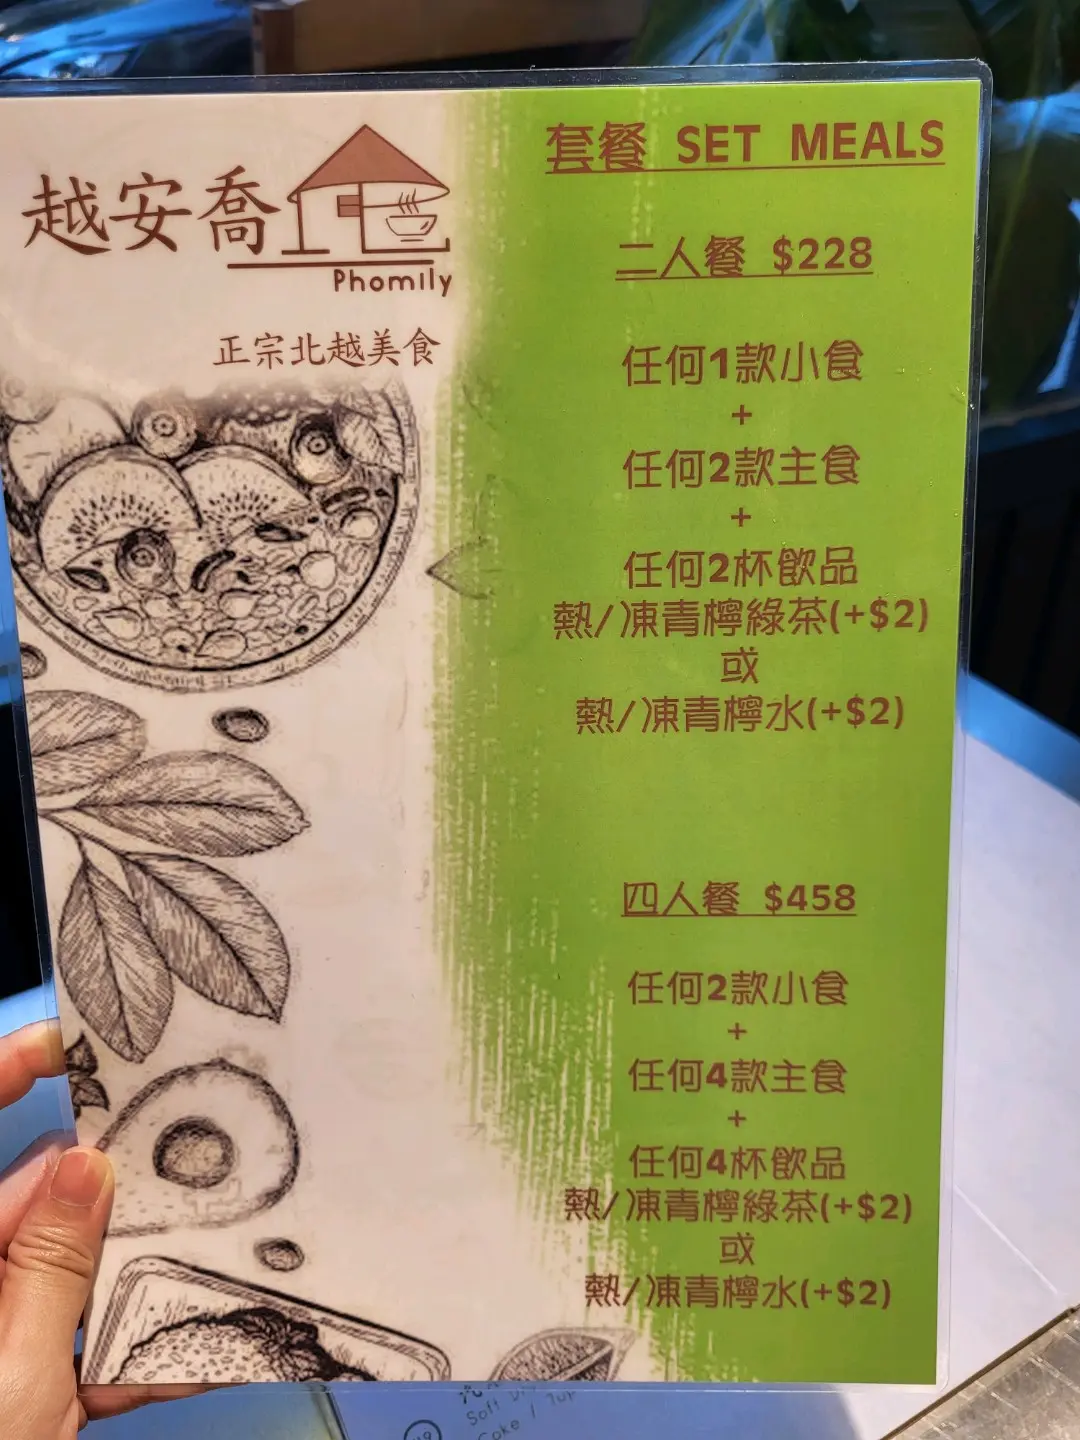 越安喬
Phomily
正宗北越美食
套餐 SET MEALS
二人餐 $228
任何1款小食
+
任何2款主食
+
任何2杯飲品
熱/凍青檸綠茶(+$2)
或
熱/凍青檸水(+$2)
四人餐 $458
任何2款小食
+
任何4款主食
+
任何4杯飲品
熱/凍青檸綠茶(+$2)
或
熱/凍青檸水(+$2)
Soft
Coke / 7up